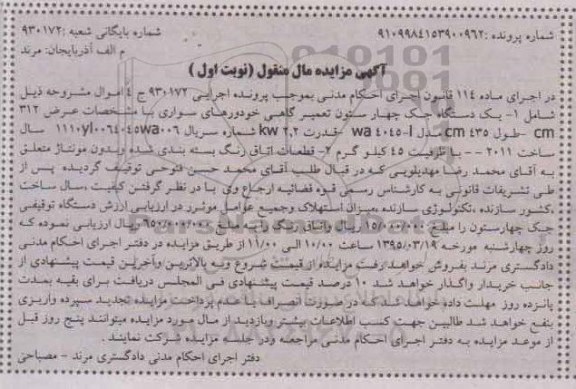 شماره پرونده :۹۱۰۹۹۸۴۱۵۳۹۰۰۹۶۲ شماره بایگانی شعبه :۹۳۰۱۷۲
م الف آذربایجان: مرند
آگهی مزایده مال منقول (نوبت اول )
در اجرای ماده ۱۱۴ قانون اجرای احکام مدنی بموجب پرونده اجرایی ۹۳۰۱۷۲ ج ۴ اموال مشروحه ذیل
شامل ۱- یک دستگاه جک چهار ستون تعمیر گاهی خودورهای سواری با مشخصات عرض ۳۱۲
cm -طول ۴۳۵ cm مدل wa ۴۰۴۵-I -قدرت ۲,۲ kw شماره سریال ۱۱۱۰yl۰۰۶۴۰۴۵wa۰۰۶ سال
ساخت ۲۰۱۱ - - با ظرفیت ۴۵ کیلو گرم ۲- قطعات اتاق رنگ بسته بندی شده وبدون مونتاژ متعلق
به آقای محمد رضا مهدیلویی که در قبال طلب آقای محمد حسن فتوحی توقیف گردیده پس از
طی تشریفات قانونی به کارشناس رسمی قوه قضائیه ارجاع وی با در نظر گرفتن کیفیت ،سال ساخت
،کشور سازنده ،تکنولوژی سازنده ،میزان استهلاک وجمیع عوامل موثردر ارزیابی ارزش دستگاه توقیفی
جک چهارستون را مبلغ ۱۵/۰۰۰/۰۰۰ ریال واتاق رنگ رابه مبلغ ریال ارزیابی نموده که
روز چهارشنبه مورخه ۱۳۹۵/۰۳/۱۹ ساعت ۱۰/۰۰ الی ۱۱/۰۰ از طریق مزایده در دفتر اجرای احکام مدنی
دادگستری مرند بفروش خواهد رفت مزایده از قیمت شروع وبه بالاترین وآخرین قیمت پیشنهادی از
جانب خریدار واگذار خواهد شد ۱۰ درصد قیمت پیشنهادی فی المجلس دریافت برای بقیه بمدت
پانزده روز مهلت داده خواهد شد که در صورت انصراف یا عدم پرداخت مزایده تجدید سپرده واریزی
بنفع خواهد شد طالبین جهت کسب اطلاعات بیشتر وبازدید از مال مورد مزایده میتوانند پنج روز قبل
از موعد مزایده به دفتر اجرای احکام مدنی مراجعه ودر جلسه مزایده شرکت نمایند .
دفتر اجرای احکام مدنی دادگستری مرند - مصباحی